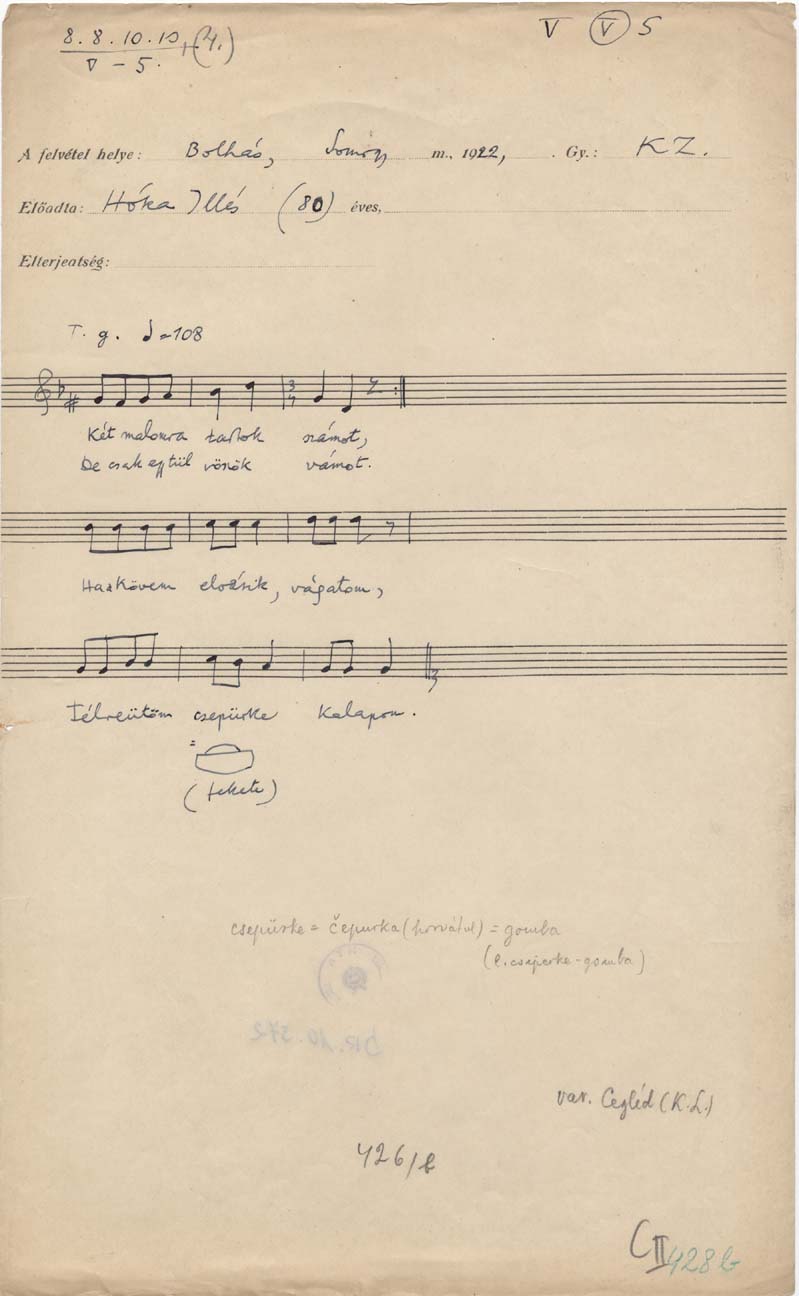 8. 8. 10. 10, (4.) V V 5
V – 5.
A felvétel helye: Bolhás, Somogy m., 1922, . Gy.: K Z.
Előadta: Hóka Illés (80) éves,
Elterjeatség:
T. g. = 108
3
Két malomra tartok számot,
De csak egytül vöszök vámot.
Ha a kövem elvásik, vágatom,
Félreütöm csepürke kalapom.
=
(fekete)
csepürke = čepurka (horvátul) = gomba
(l. csiperke-gomba)
var. Cegléd (K. L.)
426/b
C II 428b